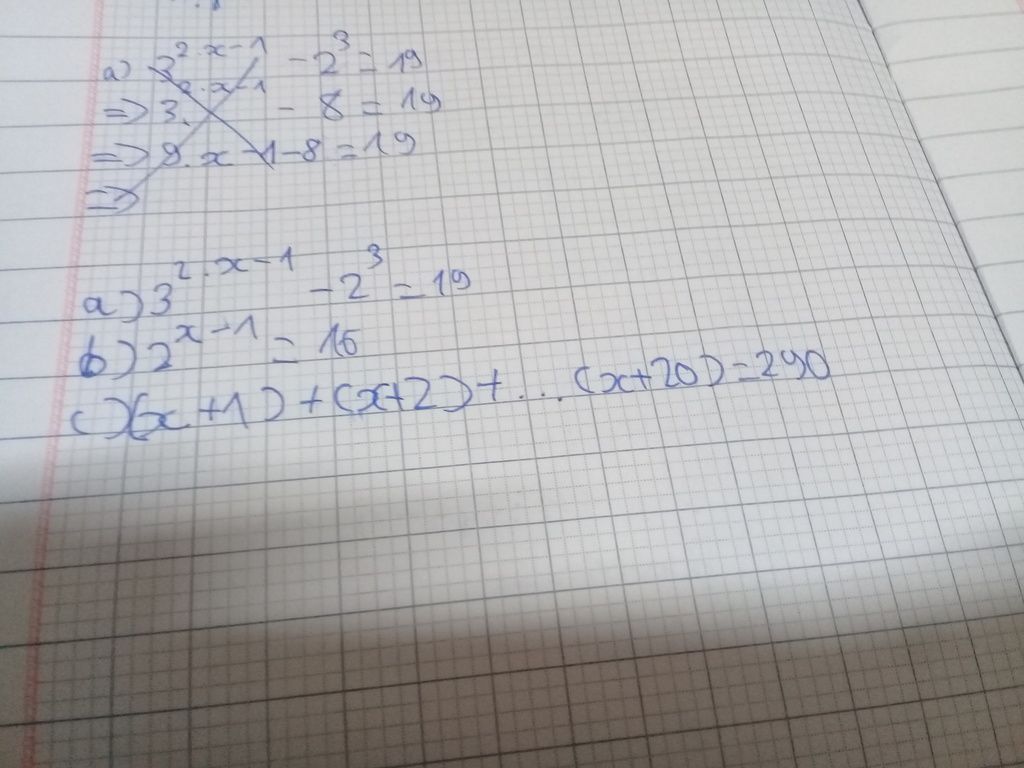 a) 3^2.x-1 - 2^3 = 19
=> 3^2.x-1 - 8 = 19
=> 9.x-1-8=19
=>
a) 3^2.x-1 - 2^3 = 19
b) 2^x-1 = 16
c) (x+1)+(x+2)+...(x+20)=290